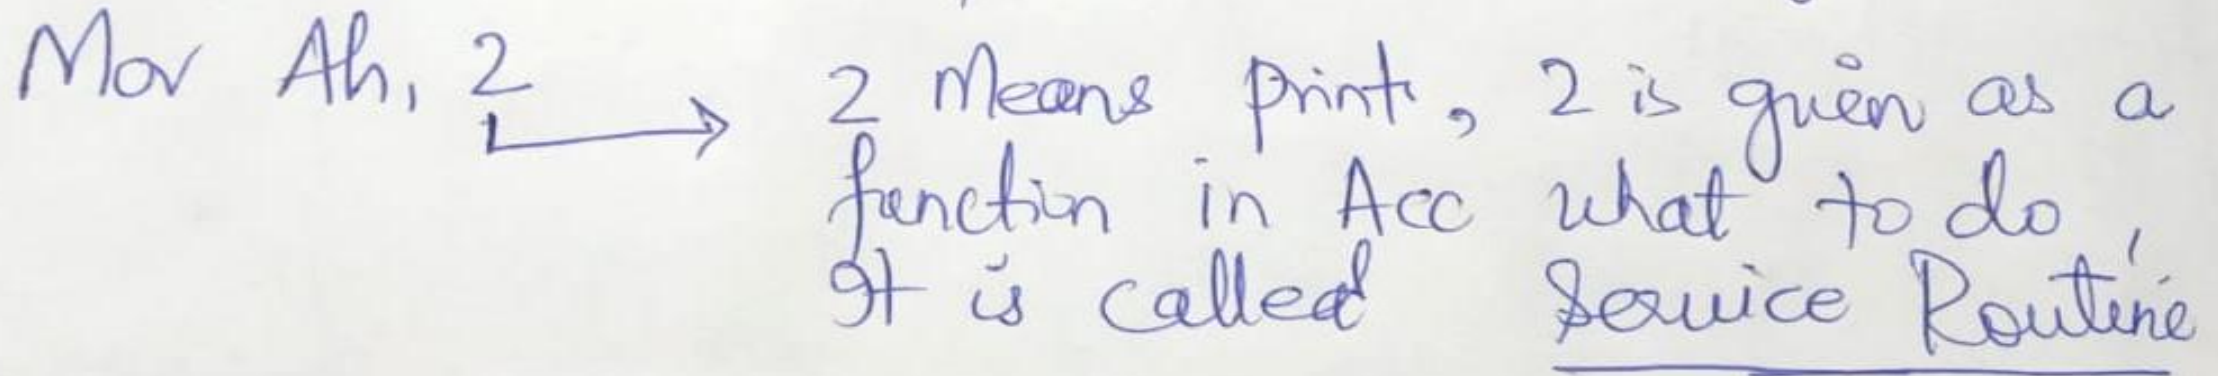 Mov Ah, 2 2 Means print, 2 is given as a
function in Acc what to do,
It is called Service Routine